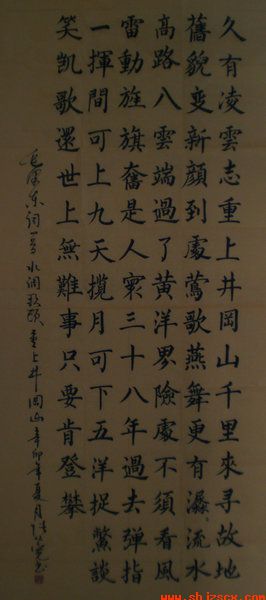 久有凌雲志重上井岡山千里來尋故地
舊貌变新顔到處鶯歌燕舞更有潺〻流水
高路入雲端過了黄洋界險處不須看風
雷動旌旗奮是人寰三十八年過去弹指
一揮間可上九天攬月可下五洋捉鱉談
笑凱歌還世上無難事只要肯登攀
毛澤东詞一首水調歌頭重上井岡山辛卯年夏月